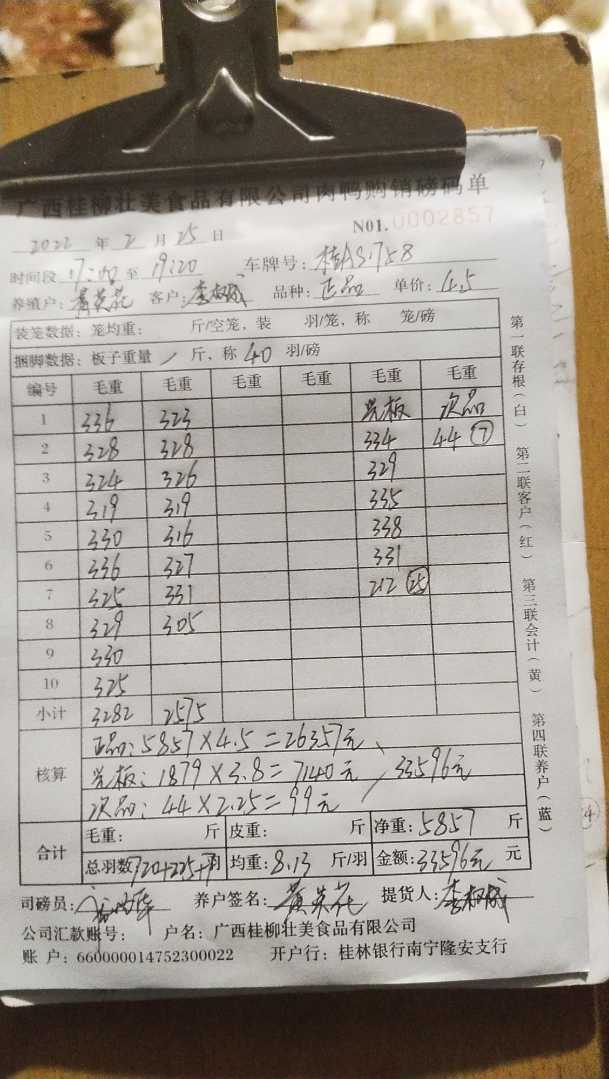 广西桂柳壮美食品有限公司肉鸭购销磅码单
2022 年 2 月 25 日 N01. 0002857
时间段 17:00 至 19:20 车牌号: 桂AS·758
养殖户: 黄英花 客户: 品种: 正品 单价: 4.5
装笼数据: 笼均重: 斤/空笼, 装 羽/笼, 称 笼/磅
捆脚数据: 板子重量 / 斤, 称 40 羽/磅
编号 毛重 毛重 毛重 毛重 毛重 毛重
1 336 323 光板 次品
2 328 328 334 44 ⑦
3 324 326 329
4 319 319 335
5 330 316 338
6 336 327 331
7 325 331 212 ㉕
8 329 305
9 330
10 325
小计 3282 2575
核算
正品: 5857×4.5=26357元、
光板: 1879×3.8=7140元 / 33596元
次品: 44×2.25=99元
合计
毛重: 斤 皮重: 斤 净重: 5857 斤
总羽数 720+225+7羽 均重: 8.13 斤/羽 金额: 33596元 元
司磅员: 养户签名: 黄英花 提货人:
公司汇款账号: 户名: 广西桂柳壮美食品有限公司
账 户: 660000014752300022 开户行: 桂林银行南宁隆安支行
第一联存根(白) 第二联客户(红) 第三联会计(黄) 第四联养户(蓝)